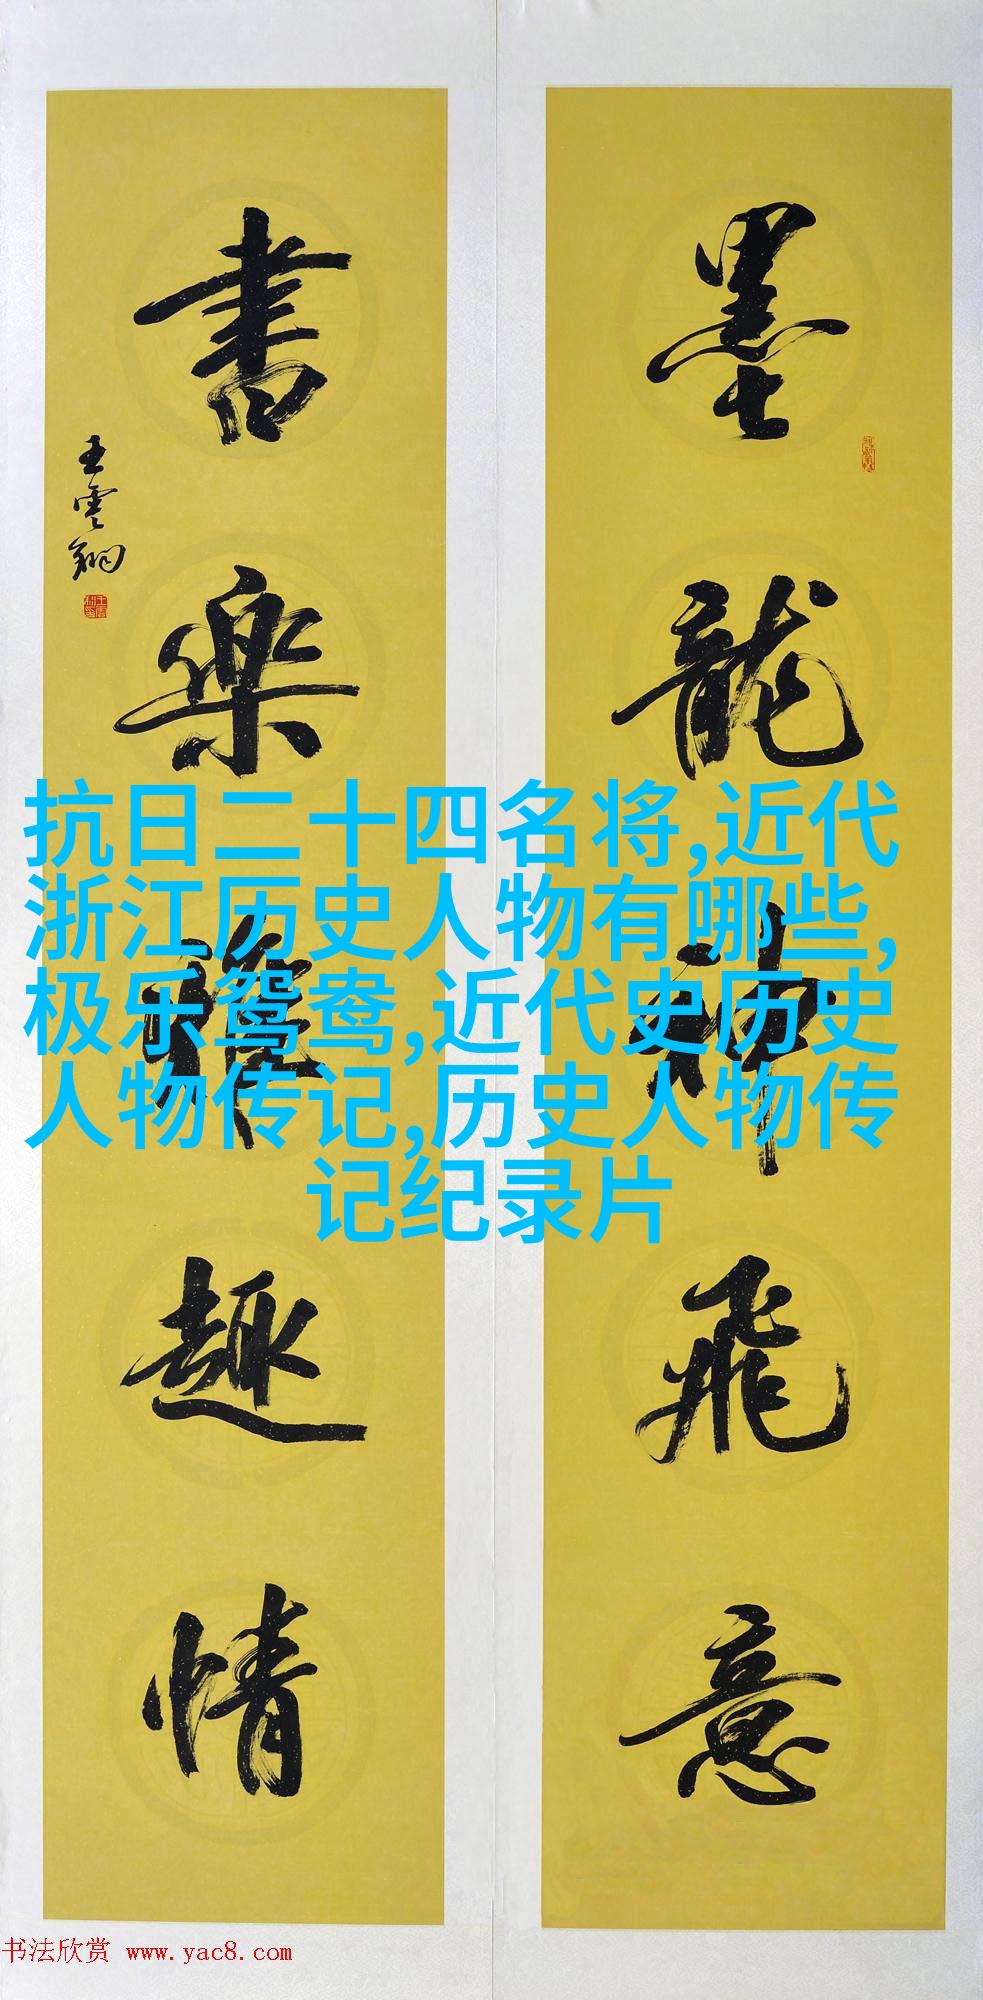 墨龍神飛意
書樂雅趣情
王雲翔
抗日二十四名将,近代
浙江历史人物有哪些,
极乐鸳鸯,近代史历史
人物传记,历史人物传
记纪录片
书法欣赏 www.yac8.com